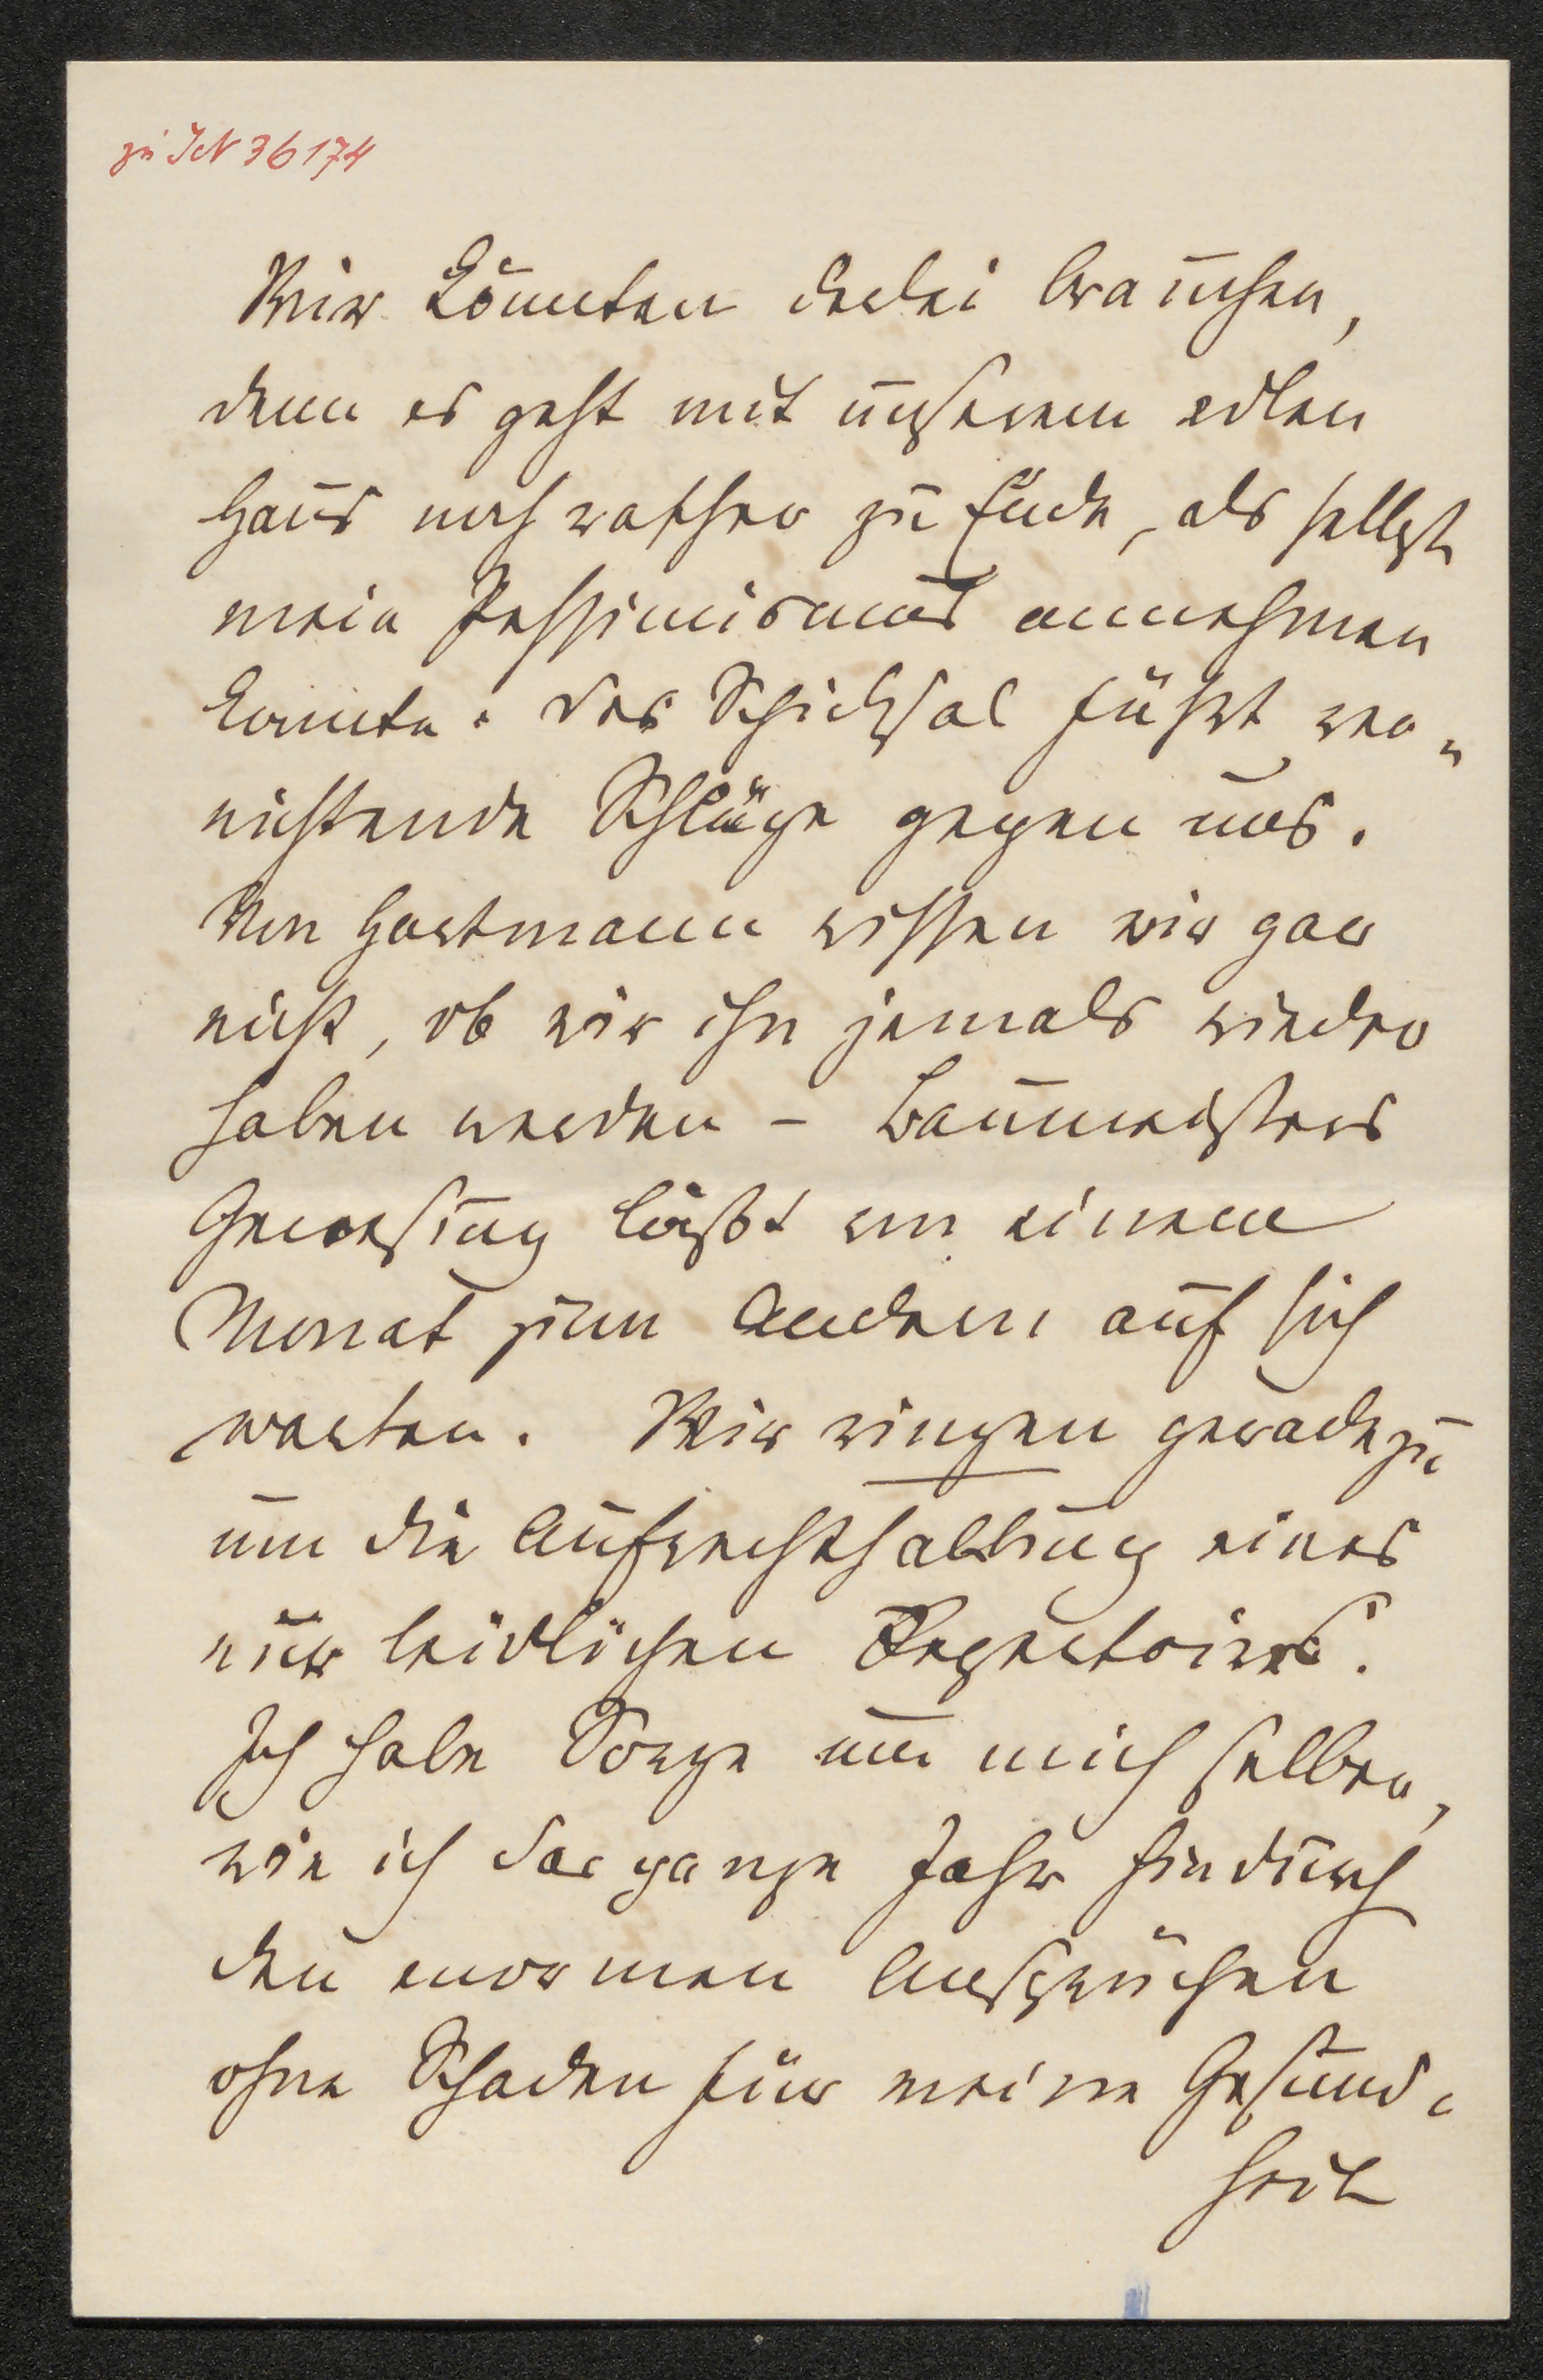 zu IN 36174
Wir könnten derlei brauchen,
denn es geht mit unserem edlen
Haus noch rascher zu Ende, als selbst
mein Pessimismus annehmen
konnte. Das Schicksal führt ver„
nichtende Schläge gegen uns.
Von Hartmann wissen wir gar
nicht, ob wir ihn jemals wieder
haben werden – Baumeisters
Genesung läßt von einem
Monat zum Andern auf sich
warten. Wir ringen geradezu
um die Aufrechthaltung eines
nur leidlichen Repertoires.
Ich habe Sorge um mich selber,
wie ich das ganze Jahr hindurch
den enormen Ansprüchen
ohne Schaden für meine Gesund-
heit